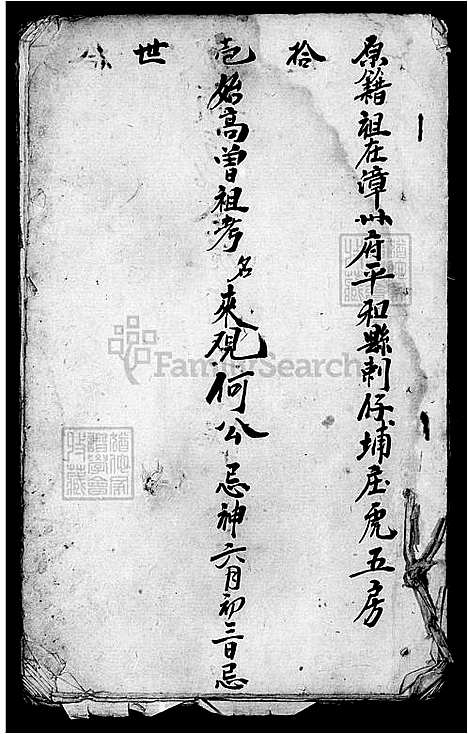 原籍祖在漳州府平和縣刺仔埔庄虎五房
拾壱世
始高曾祖考名來硯何公 忌神六月初三日忌
FamilySearch